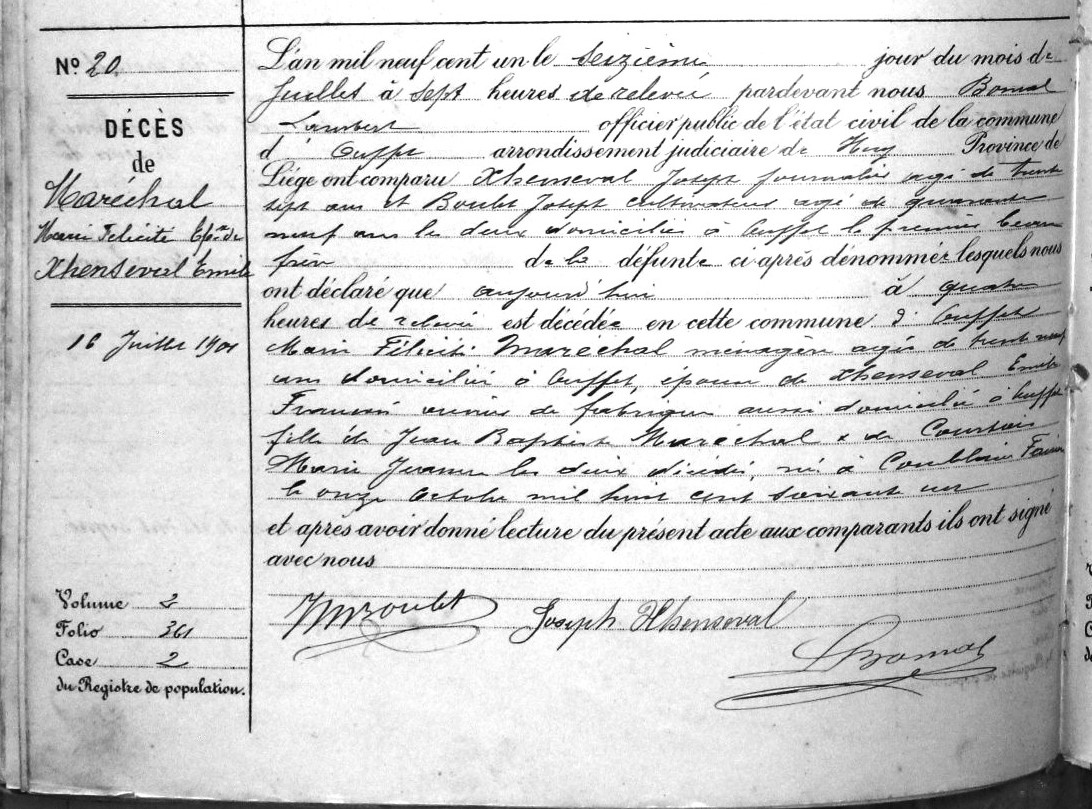 Nº 20.
DÉCÈS
de
Maréchal
Marie Félicité Ép.se de
Xhenseval Emile
16 Juillet 1901
Volume 2
Folio 361
Case 2
du Registre de population.
L'an mil neuf cent un le seizième jour du mois de
Juillet à sept heures de relevée pardevant nous Bomal
Lambert officier public de l'état civil de la commune
d' Ouffet arrondissement judiciaire de Huy Province de
Liége ont comparu Xhenseval Joseph journalier agé de trente
sept ans et Boulet Joseph cultivateur agé de quarante
neuf ans les deux domiciliés à Ouffet le premier beau
frère de la défunte ci après dénommée lesquels nous
ont déclaré que aujourd'hui à quatre
heures de relevée est décédée en cette commune d' Ouffet
Marie Félicité Maréchal ménagère agée de trente neuf
ans domiciliée à Ouffet, épouse de Xhenseval Emile
François ouvrier de fabrique aussi domicilié à Ouffet
fille de Jean Baptiste Maréchal & de Courtois
Marie Jeanne les deux décédés, née à Comblain Fairon
le onze Octobre mil huit cent soixante un
et après avoir donné lecture du présent acte aux comparants ils ont signé
avec nous
Joseph Xhenseval
LBomal